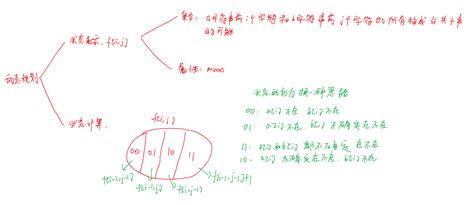 动态规划
状态表示 f[i,j]
集合: a字符串前i个字符和b字符串前j个字符的所有构成公共子串
的可能
属性: max
状态计算:
f[i,j]
00 01 10 11
f[i-1,j-1]
f[i-1,j]
f[i,j-1]
f[i-1,j-1]+1
状态的划分换一种思路
00: a[i]不在 b[j]不在
01: a[i]不在, b[j]不确定在不在
11: a[i]和b[j]都不确定 在不在
10: a[i]不确定在不在, b[j]不在